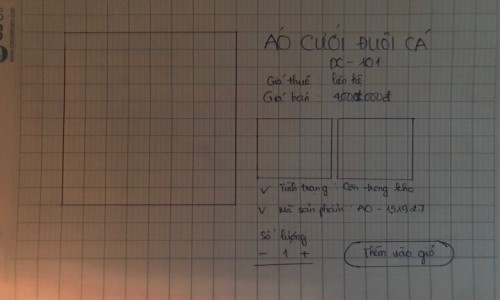 ÁO CƯỚI ĐUÔI CÁ
DC - 101
Giá thuê liên hệ
Giá bán : 4000.000đ
✓ Tình trạng : Còn trong kho
✓ Mã sản phẩm : AO - 151927
Số lượng
- 1 +
Thêm vào giỏ